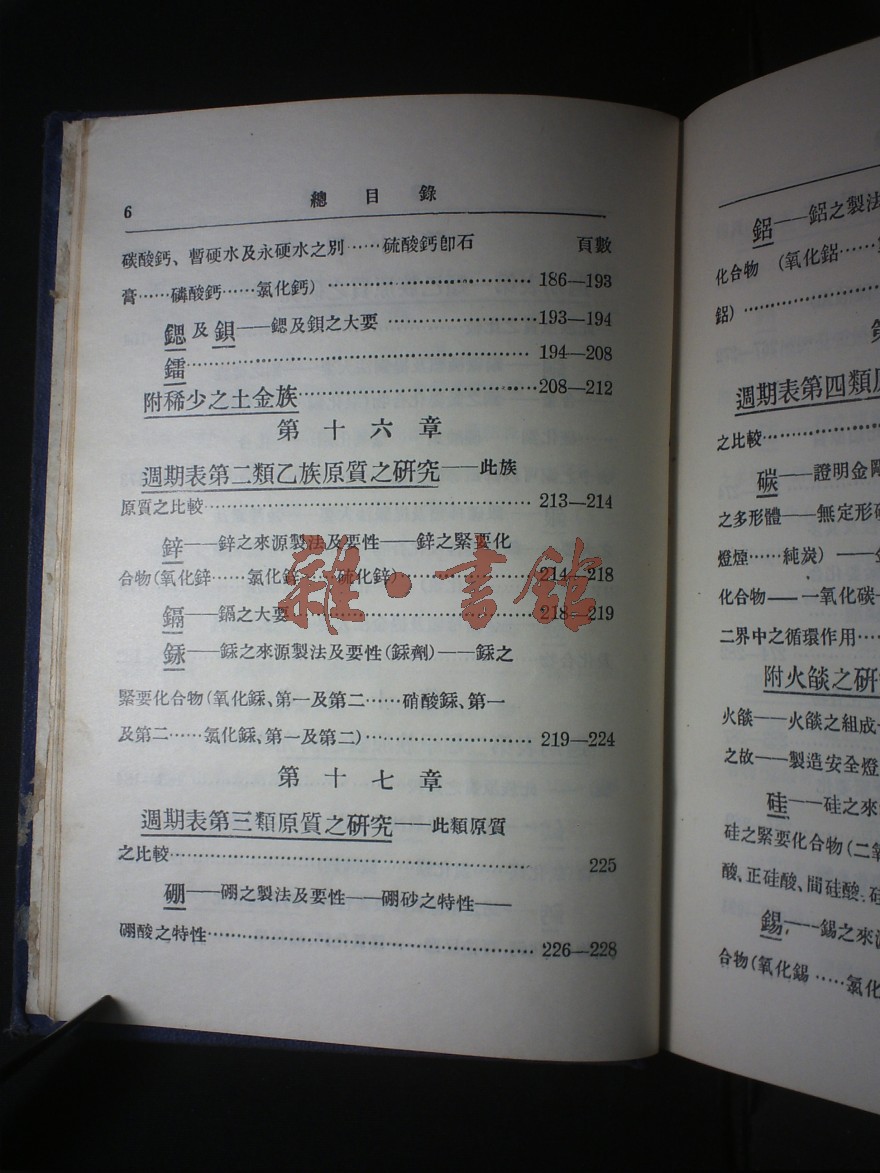 6
總目錄
碳酸鈣、暫硬水及永硬水之別……硫酸鈣卽石 頁數
膏……磷酸鈣……氯化鈣)……186—193
鍶及鋇——鍶及鋇之大要……193—194
鐳……194—208
附稀少之土金族……208—212
第十六章
週期表第二類乙族原質之硏究——此族
原質之比較……213—214
鋅——鋅之來源製法及要性——鋅之緊要化
合物(氧化鋅……氯化鋅……硫化鋅)……214—218
鎘——鎘之大要……218—219
銾——銾之來源製法及要性(銾劑)——銾之
緊要化合物(氧化銾、第一及第二……硝酸銾、第一
及第二……氯化銾、第一及第二)……219—224
第十七章
週期表第三類原質之硏究——此類原質
之比較……225
硼——硼之製法及要性——硼砂之特性——
硼酸之特性……226—228
雜·書館
鋁——鋁之製法
化合物 (氧化鋁……
鋁)……
週期表第四類
之比較……
碳——證明金
之多形體——無定形
燈煙……純炭)——
化合物——一氧化碳
二界中之循環作用……
附火燄之硏
火燄——火燄之組成
之故——製造安全燈
硅——硅之來
硅之緊要化合物(二
酸、正硅酸、間硅酸、
錫——錫之來
合物(氧化錫……氯化